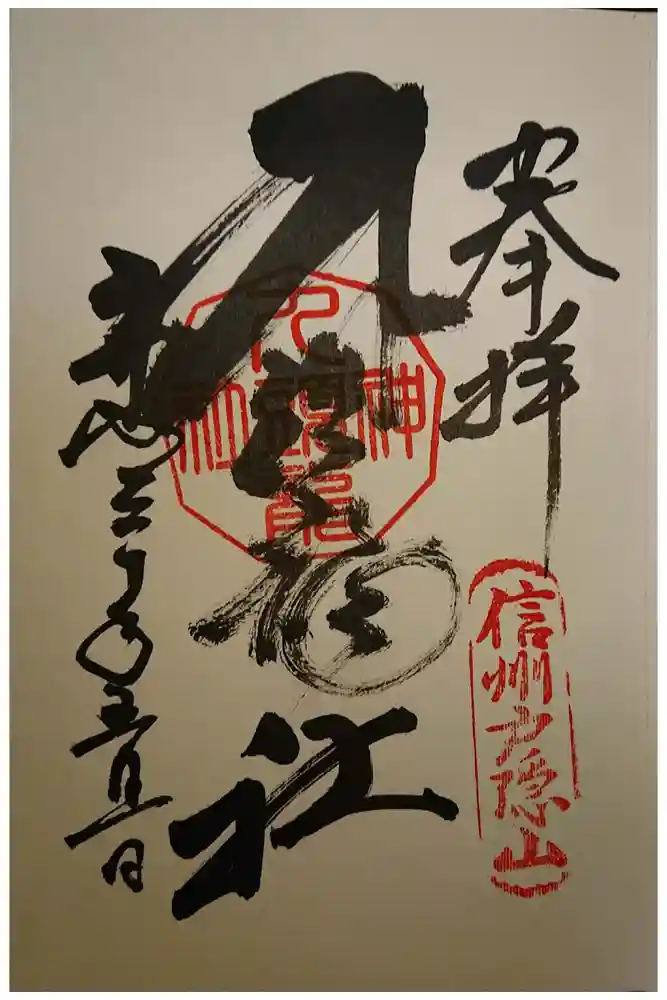 奉拝
信州戸隠山
九頭龍社
九頭龍神社
平成三十年五月五日